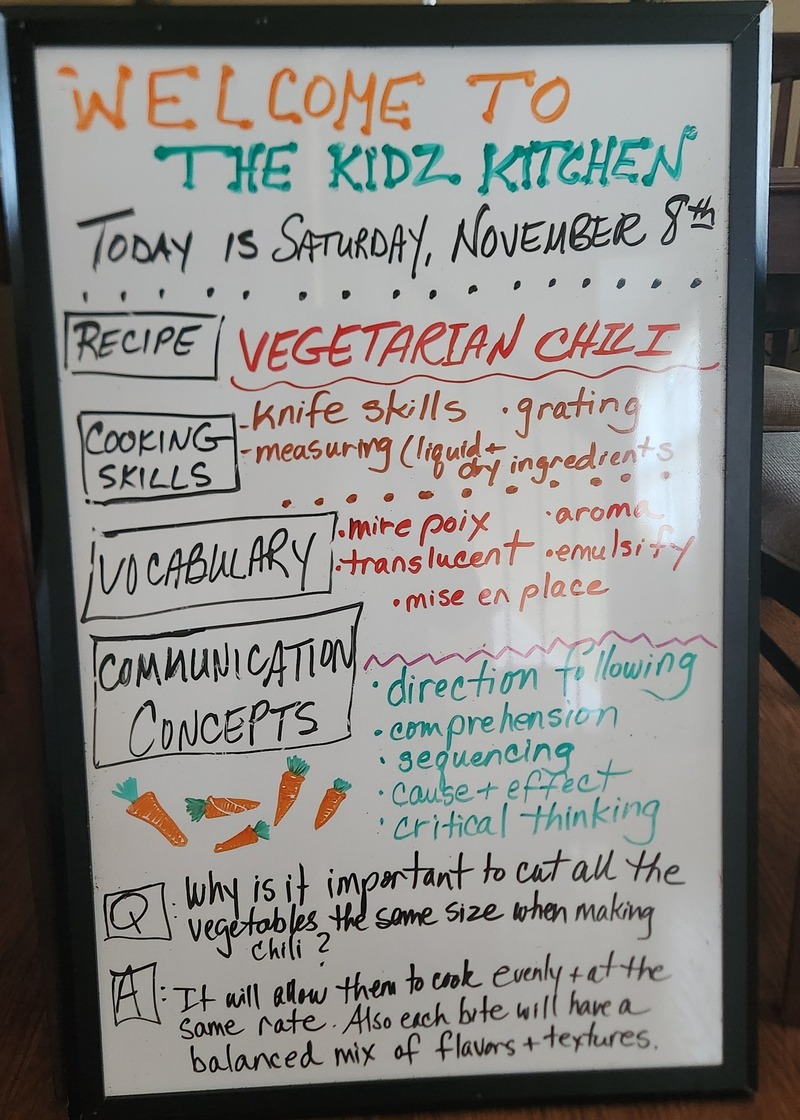 WELCOME TO
THE KIDZ KITCHEN
TODAY IS SATURDAY, NOVEMBER 8th
RECIPE VEGETARIAN CHILI
COOKING SKILLS
-knife skills •grating
-measuring (liquid + dry ingredients
VOCABULARY
•mire poix •aroma
•translucent •emulsify
•mise en place
COMMUNICATION CONCEPTS
•direction following
•comprehension
•sequencing
•cause + effect
•critical thinking
Q: Why is it important to cut all the
vegetables the same size when making
chili?
A: It will allow them to cook evenly + at the
same rate. Also each bite will have a
balanced mix of flavors + textures.